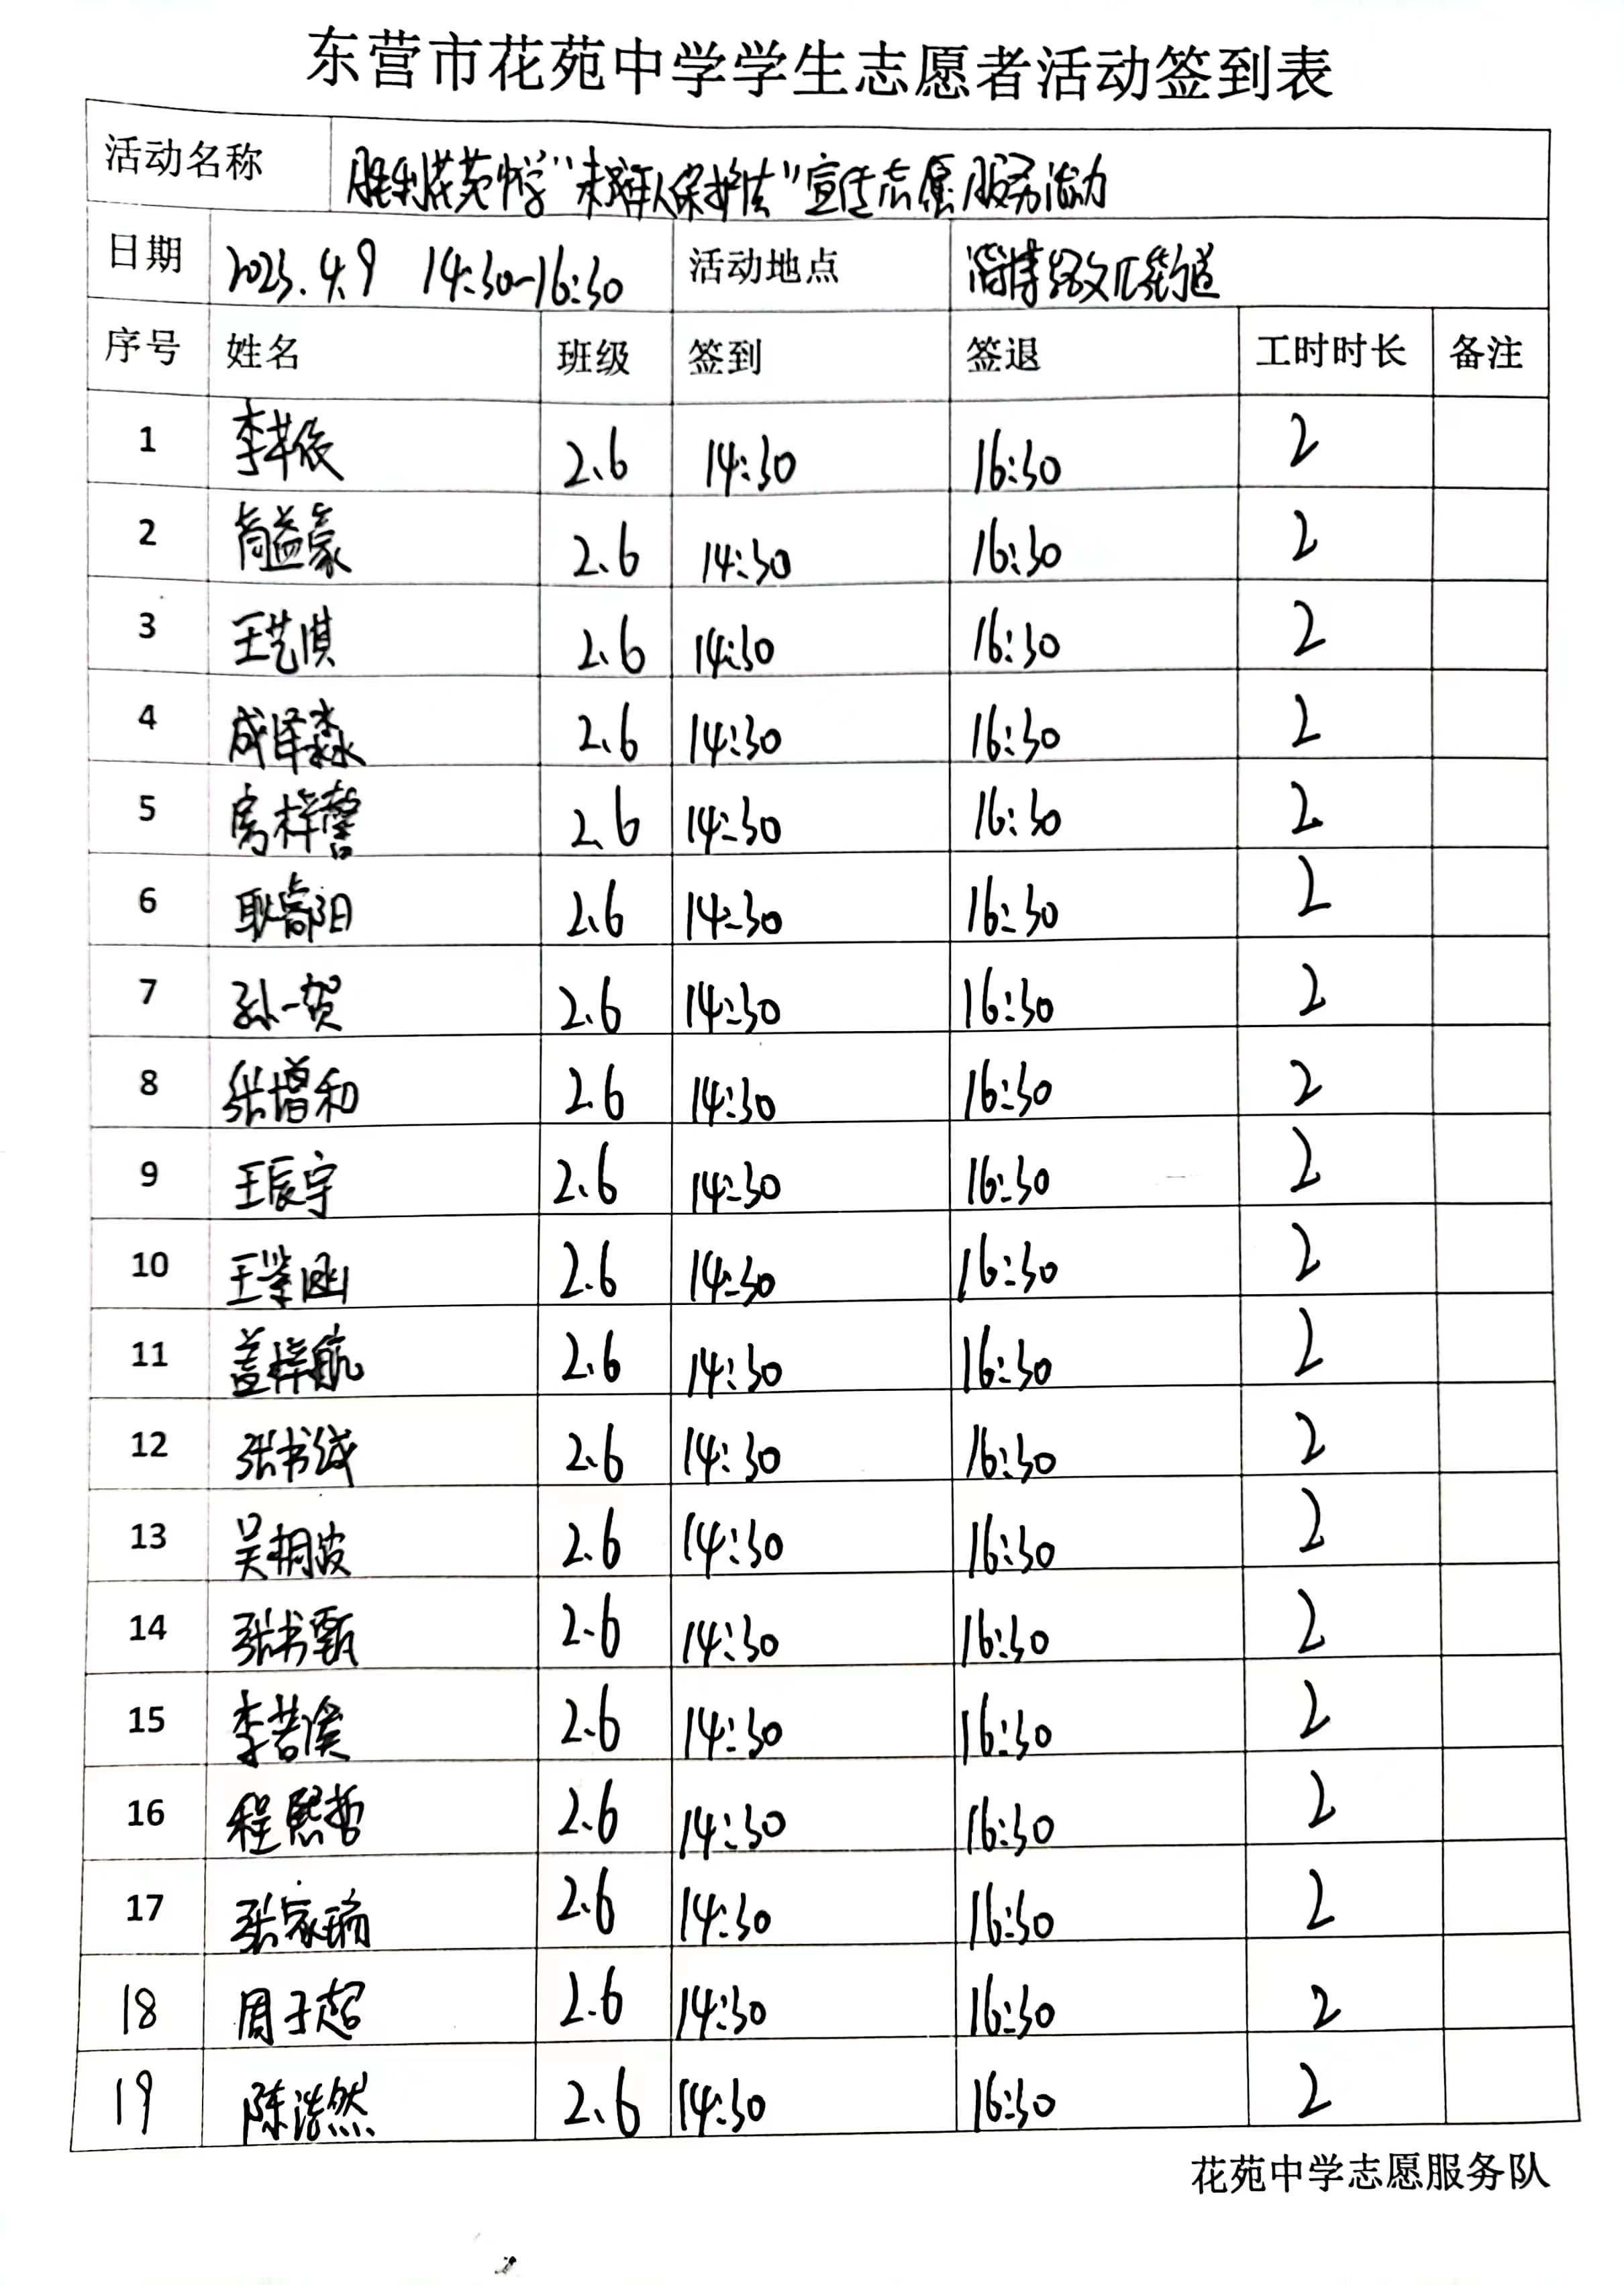 东营市花苑中学学生志愿者活动签到表
活动名称 胜利花苑中学“未成年人保护法”宣传志愿服务活动
日期 2023.4.9 14:30-16:30 活动地点 淄博路文汇街道
序号 姓名 班级 签到 签退 工时时长 备注
1 李 2.6 14:30 16:30 2
2 益豪 2.6 14:30 16:30 2
3 王艺淇 2.6 14:30 16:30 2
4 成泽淼 2.6 14:30 16:30 2
5 房梓馨 2.6 14:30 16:30 2
6 耿睿阳 2.6 14:30 16:30 2
7 孙一贺 2.6 14:30 16:30 2
8 张增和 2.6 14:30 16:30 2
9 王辰宇 2.6 14:30 16:30 2
10 王 涵 2.6 14:30 16:30 2
11 盖梓航 2.6 14:30 16:30 2
12 张书诚 2.6 14:30 16:30 2
13 吴桐波 2.6 14:30 16:30 2
14 张书甄 2.6 14:30 16:30 2
15 李若溪 2.6 14:30 16:30 2
16 程熙哲 2.6 14:30 16:30 2
17 张家瑞 2.6 14:30 16:30 2
18 周子超 2.6 14:30 16:30 2
19 陈浩然 2.6 14:30 16:30 2
花苑中学志愿服务队